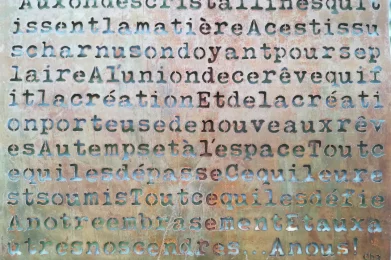 Auxondescristallinesquit
issentlamatièreAcestissu
scharnusondoyantpoursep
laireAluniondecerêvequif
itlacréationEtdelacréati
onporteusedenouveauxrêv
esAutempsetàl'espaceToutc
equilesdépasseCequileure
stsoumisToutcequilesdéfie
AnotreembrasementEtauxa
utresnoscendres...Anous!